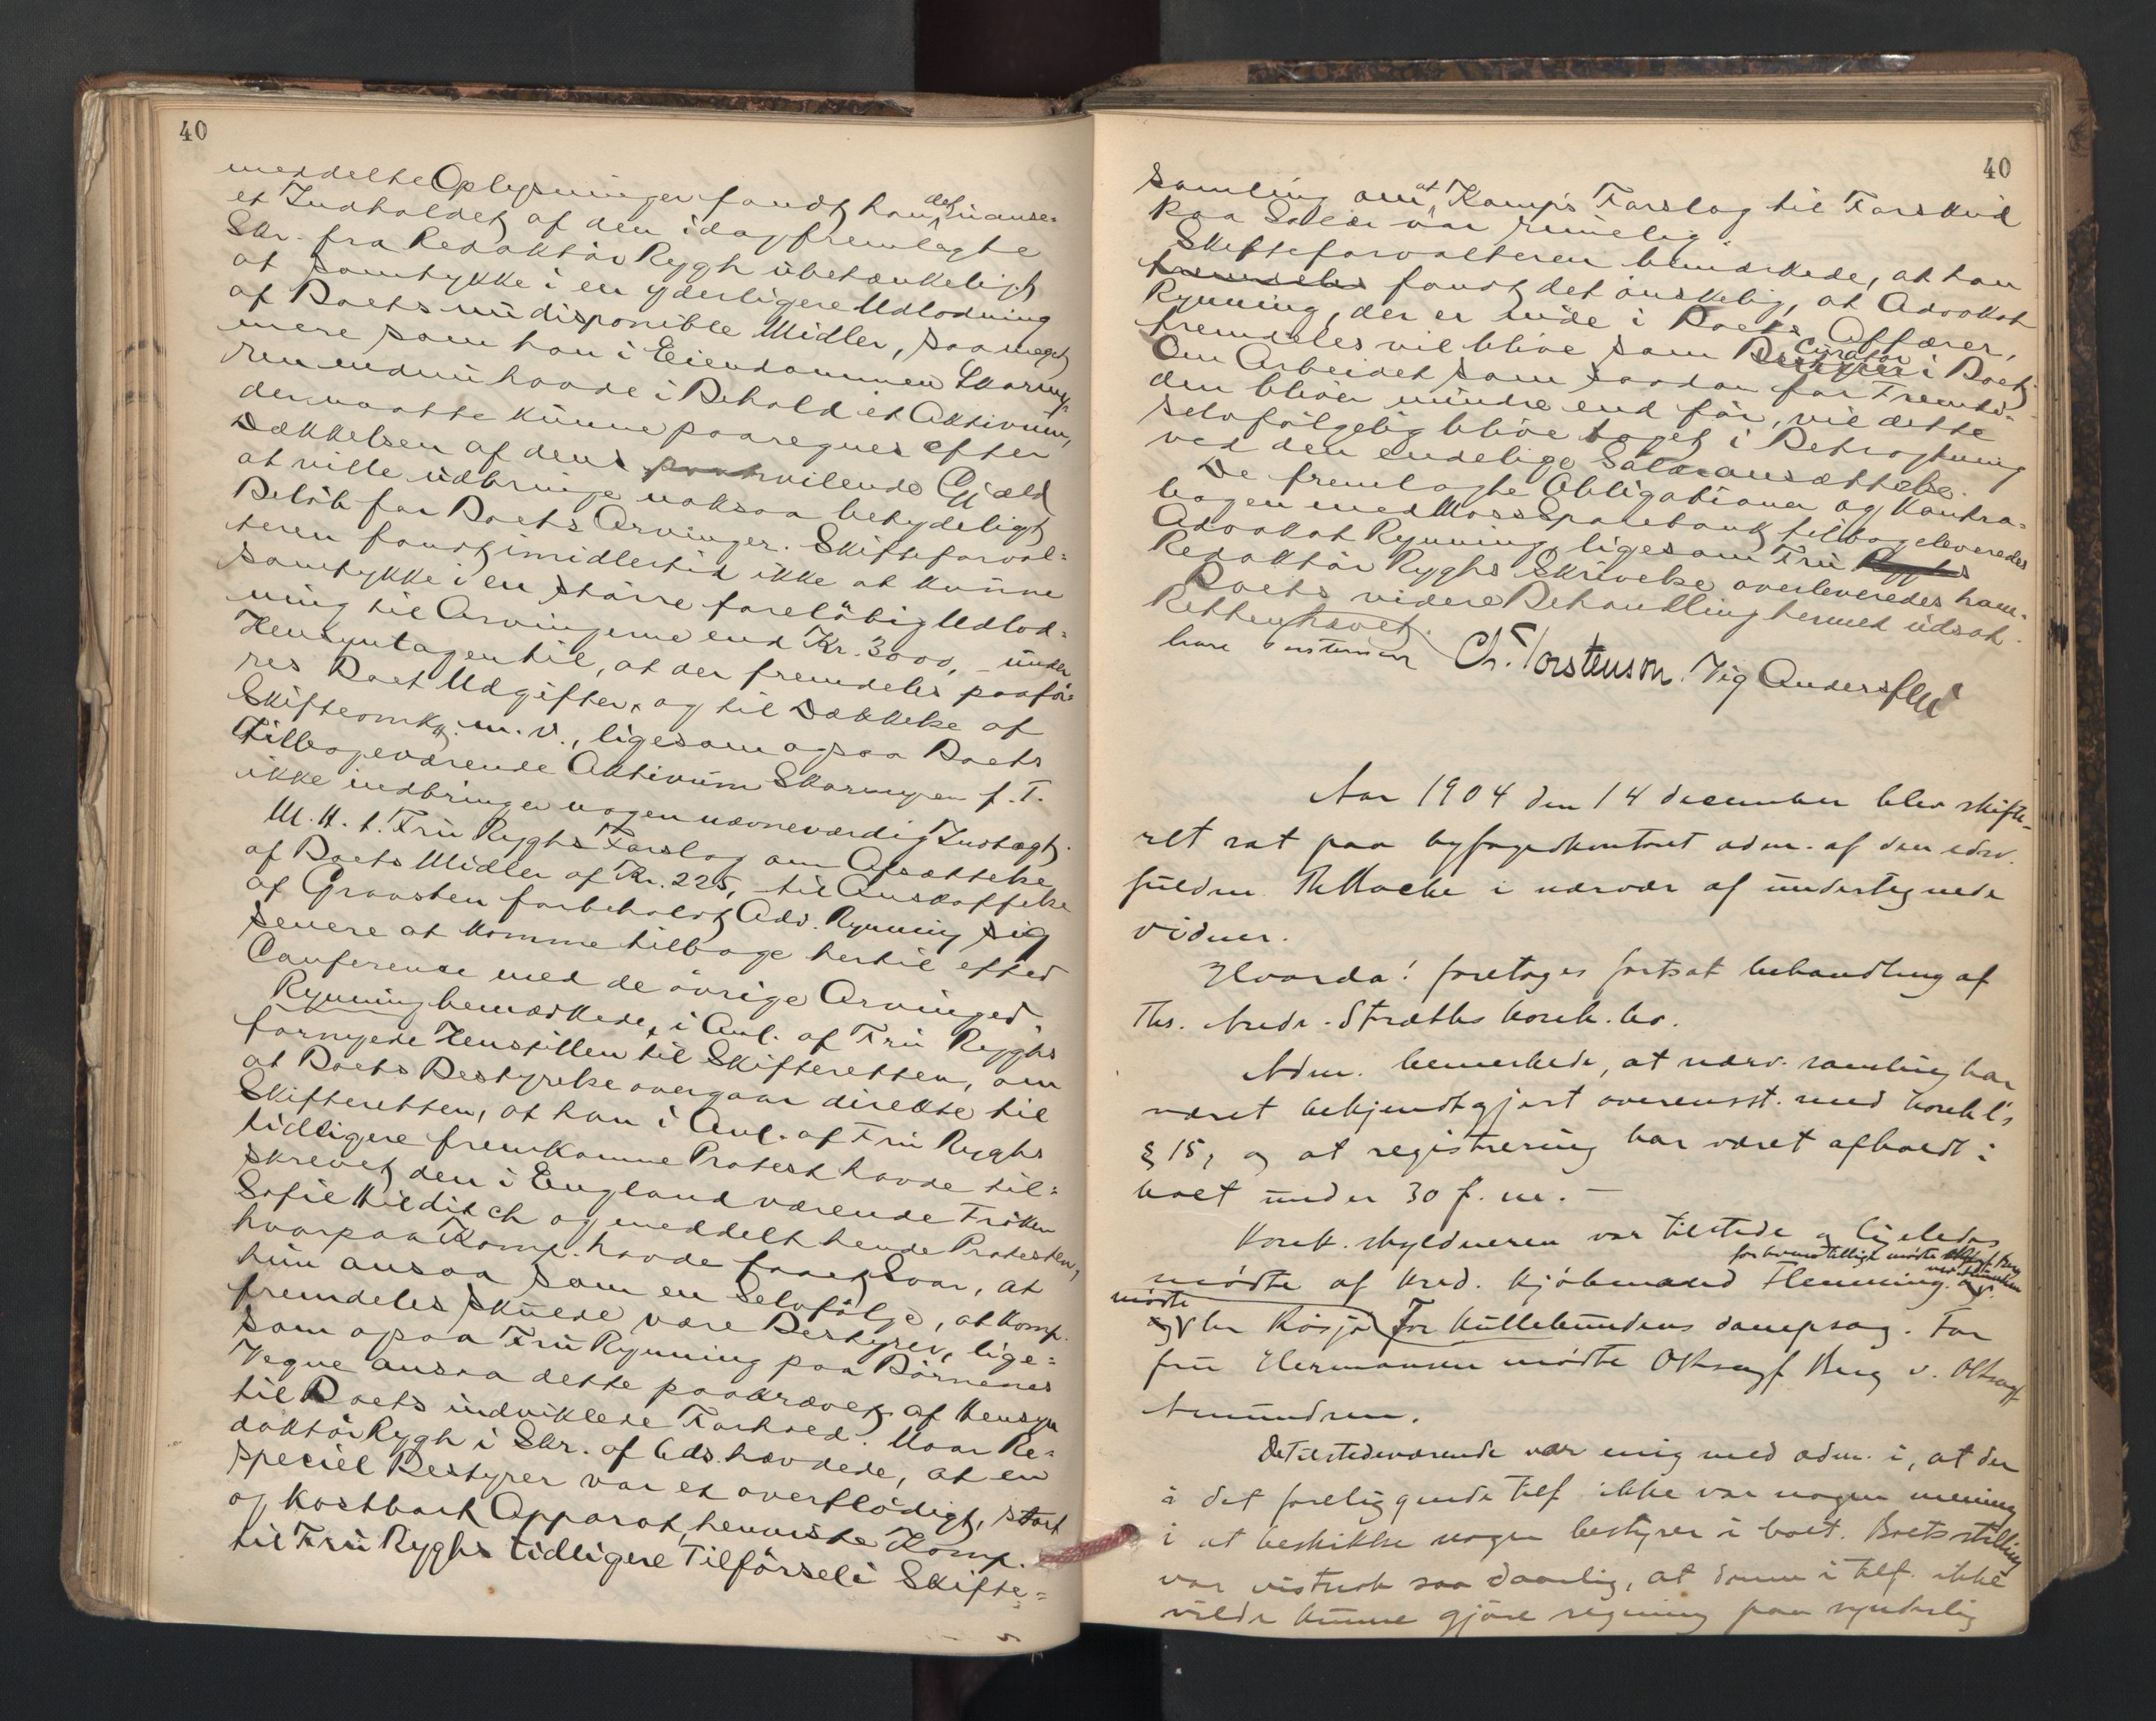 40
meddelte Oplysninger fandt han det uanse-
et Indholdet af den idag fremlagte
Skr. fra Redaktör Rygh ubetænkeligt
at samtykke i en yderligere Udlodning
af Boets nu disponible Midler, saameget
mere som han i Eiendommen Skarmy-
ren endnu havde i Behold et Aktivum,
der maatte kunne paaregnes efter
Dækkelsen af dens hvilende Gjæld
at ville udbringe noksaa betydeligt
Belöb for Boets Arvinger. Skifteforval-
teren fandt imidlertid ikke at kunne
samtykke i en större foreløbig Udlod-
ning til Arvingerne end Kr. 3000, - under
Hensyntagen til, at der fremdeles paafö-
res Boet Udgifter, og til Dækkelse af
Skifteomkg. m. v., ligesom ogsaa Boets
tilbageværende Aktivum Skarmyren f. T.
ikke indbringer nogen nævneværdig Indtægt.
M. H. t. Fru Ryghs Forslag om Afsættelse
af Boets Midler af Kr. 225, - til Anskaffelse
af Gravsten forbeholdt Adv. Rynning sig
senere at komme tilbage hertil efter
Conferense med de övrige Arvinger.
Rynning bemærkede, i Anl. af Fru Ryghs
fornyede Henstillen til Skifteretten, om
at Boets Bestyrelse overgaar direkte til
Skifteretten, at han i Anl. af Fru Ryghs
tidligere fremkomne Protest havde til-
skrevet den i England værende Fröken
Sofie Hilditch og meddelt hende Protesten,
hvorpaa Komp. havde faaet Svar, at
hun ansaa som en Selvfölge, at Komp.
fremdeles skulde være Bestyrer, lige-
som ogsaa Fru Rynning paa Börnenes
Vegne ansaa dette paakrævet af Hensyn
til Boets indviklede Forhold. Naar Re-
daktör Rygh i Skr. af 6ds. hævdede, at en
speciel Bestyrer var et overflödigt, stort
og kostbart Apparat, henviste Komp.
til Fru Ryghs tidligere Tilförsel i Skifte-
40
samling om, at Komp's Forslag til Forskud
paa Salær var rimelig.
Skifteforvalteren bemærkede, at han
fremdeles fandt det önskelig, at Advokat
Rynning, der er inde i Boets Affærer,
fremdeles vil blive som Bestyrer Curator i Boet.
Om Arbeidet som saadan for Fremti-
den bliver mindre end för, vil dette
selvfölgelig blive taget i Betragtning
ved den endelige Salæransættelse.
De fremlagte Obligationer og Kontra-
bogen med Moss Sparebank tilbageleveredes
Advokat Rynning, ligesom Fru Ryghs
Redaktör Ryghs Skrivelse overleveredes ham.
Boets videre Behandling hermed udsat.
Retten hævet.
Chr. Torstenson. Vig Andersflid
Aar 1904 den 14 december blev skifte-
ret sat paa byfogedkontoret adm. af den edsv.
fuldm. Th Macke i nærvær af undertegnede
vidner.
Hvorda! foretoges fortsat behandling af
Ths. Andr. Stræthes konk. bo.
Adm. bemerkede, at nærv. samling har
været bekjendtgjort overensst. med konkl's
§ 15, og at registrering har været afholdt i
boet under 30 f. m. -
Konk. skyldneren var tilstede og ligeledes
for hvem tillige mödte
mödte af kred. kjöbmand Henning. og
mödte
for Kullebundens dampsag. For
fru Hermansen mödte Oltrsagf. Berg v. Oltrsagf
Amundsen.
De tilstedeværende var enig med adm. i, at der
i det foreliggende tilf. ikke var nogen mening
i at beskikke nogen bestyrer i boet. Boets stilling
var vistnok saa daarlig, at denne i tilf. ikke
vilde kunne gjöre regning paa synderlig